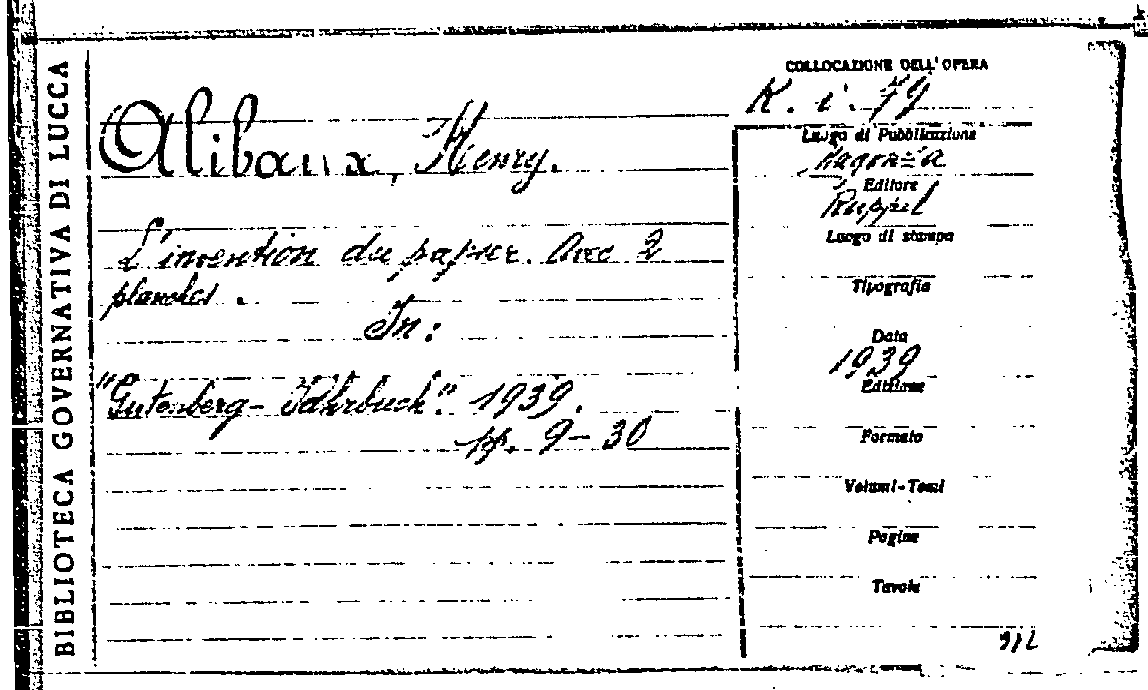 BIBLIOTECA GOVERNATIVA DI LUCCA
Alibaux, Henry.
L'invention du papier. Avec 2
planches.
In:
"Gutenberg-Jahrbuch". 1939.
pp. 9-30
COLLOCAZIONE DELL'OPERA
K. i. 79
Luogo di Pubblicazione
Magonza
Editore
Ruppel
Luogo di stampa
Tipografia
Data
1939
Edizione
Formato
Volumi-Tomi
Pagine
Tavole